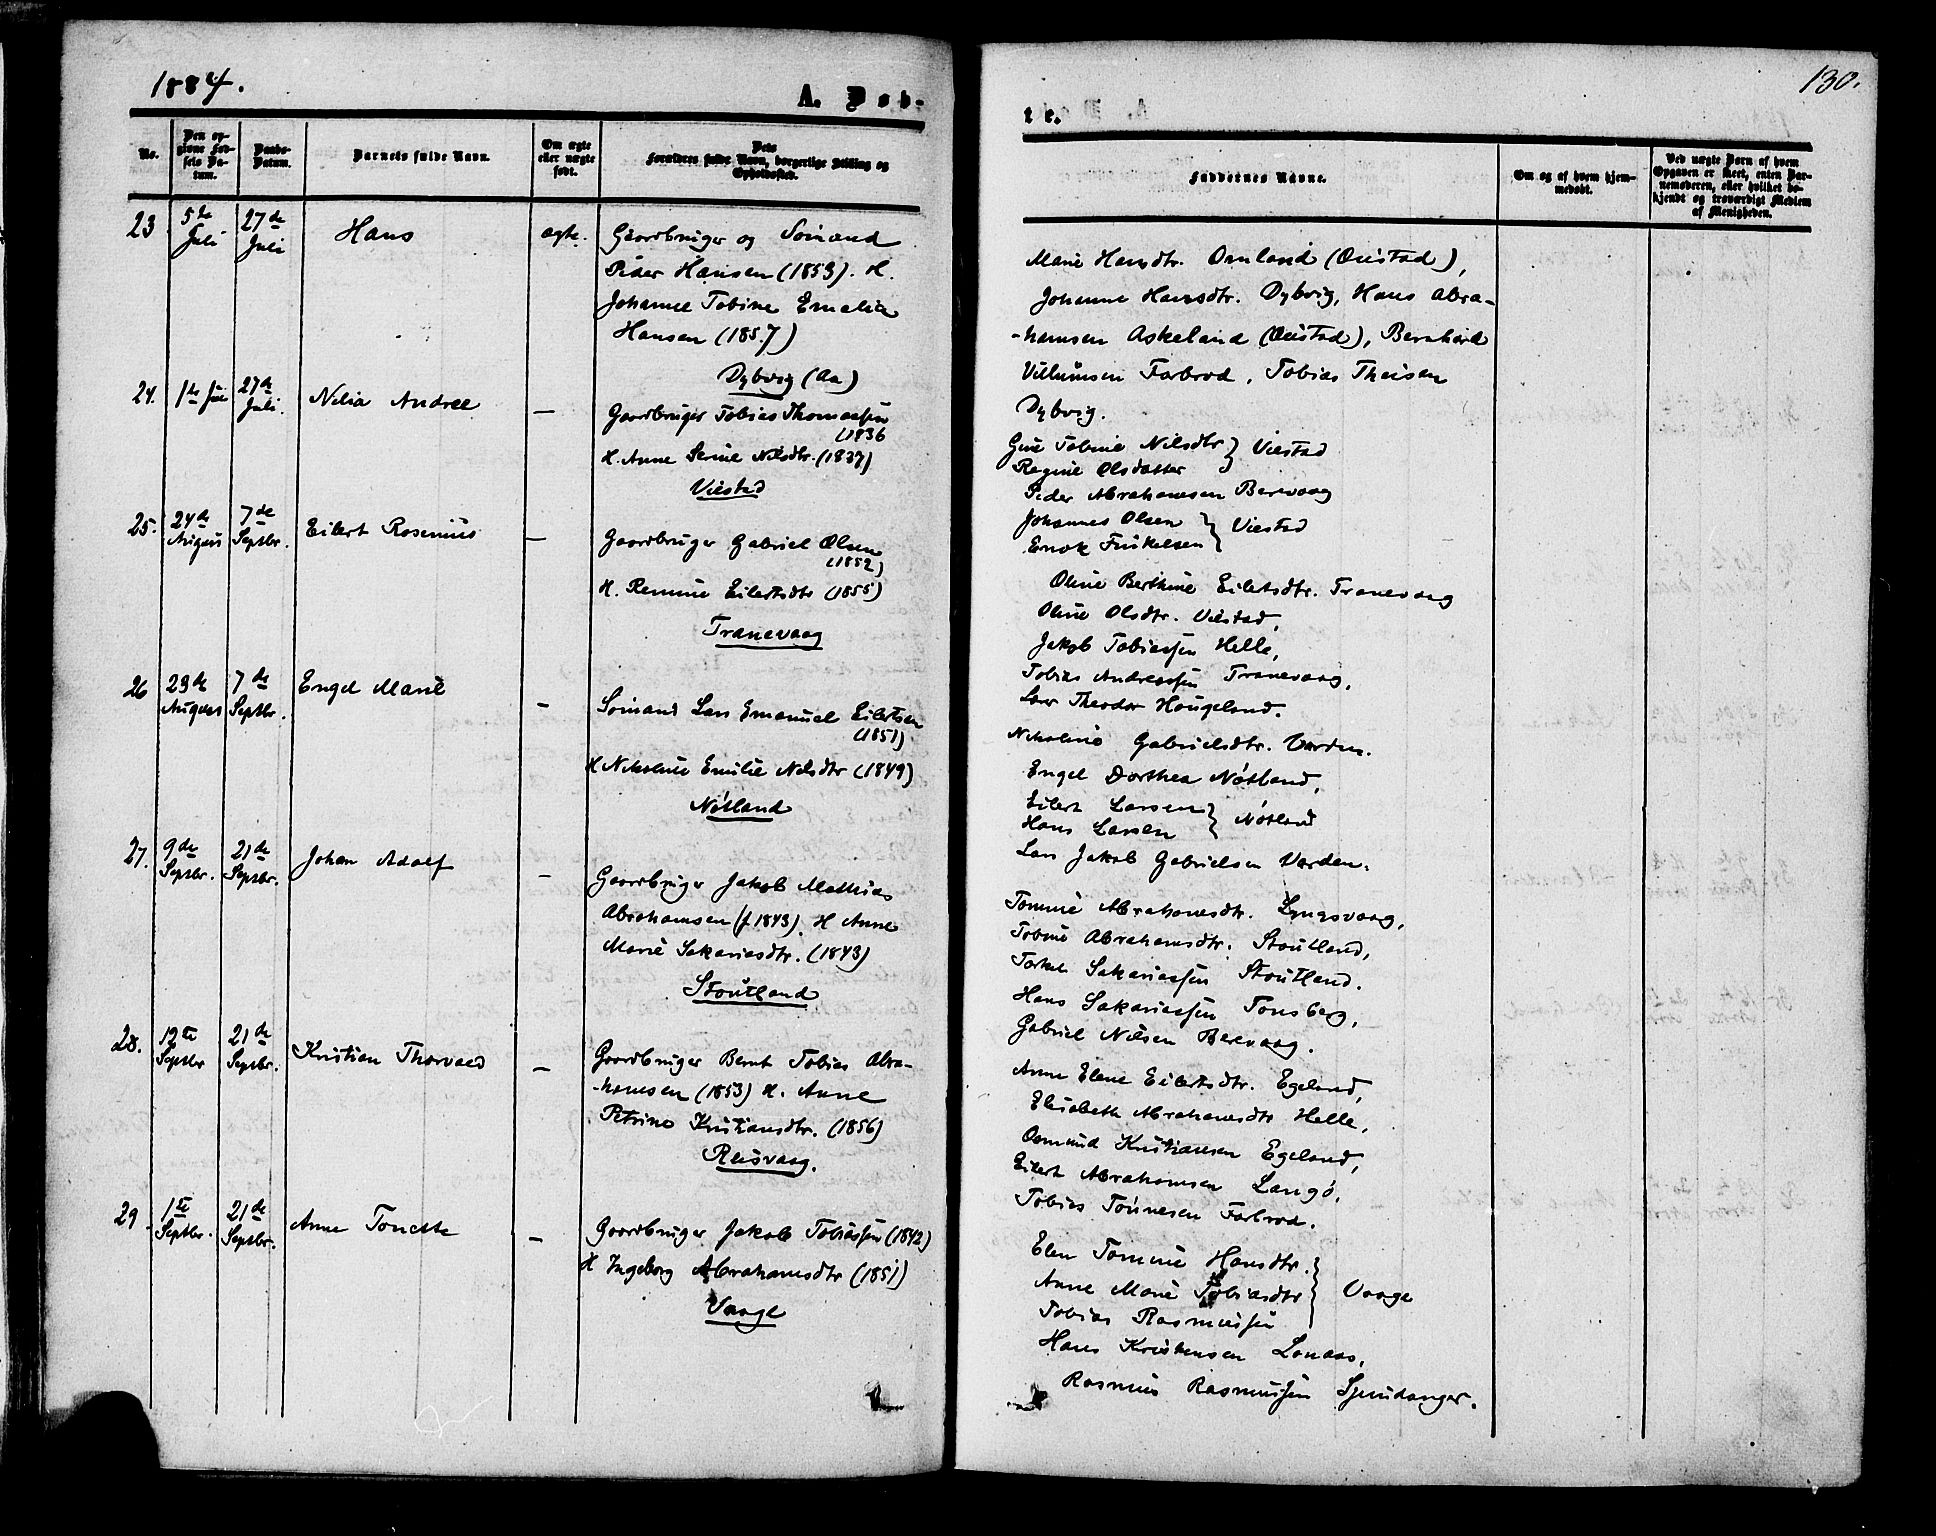 1884.
A. Døb-
No.
Den op-
givne Fød-
sels Da-
tum.
Daabs-
Datum.
Barnets fulde Navn.
Om ægte
eller uægte
født.
Dets
Forældres fulde Navn, borgerlige Stilling og
Opholdssted.
23 5te Juli 27de Juli Hans ægte. Gaardbruger og Sømand
Peder Hansen (1853). H.
Johanne Tobine Emelia
Hansen (1857)
Dybvig (Aa)
24. 1te Juli 27de Juli. Nilia Andree — Gaardbruger Tobias Thomassen
(1836
H. Anne Serine Nilsdtr. (1837)
Viestad
25. 24de August 7de Septbr. Eilert Rosenius — Gaardbruger Gabriel Olsen
(1852)
H. Remine Eilertsdtr (1855)
Tranevaag
26 23de August 7de Septbr. Engel Marie — Sømand Lars Emanuel Eilertsen
(1851)
H Nikoline Emilie Nilsdtr (1849)
Nøtland
27. 9de Septbr. 21de Septbr. Johan Adolf — Gaardbruger Jakob Mathias
Abrahamsen (f. 1843). H Anne
Marie Sakariasdtr. (1843)
Stoutland
28. 12te Septbr 21de Septbr. Kristian Thorvald — Gaardbruger Bernt Tobias Abra-
-hamsen (1853) H. Anne
Petrine Kristiansdtr. (1856)
Reisvaag.
29 1te Septbr. 21de Septbr. Anne Tonette — Gaardbruger Jakob Tobiassen (1842)
H Ingeborg Abrahamsdtr (1851)
Vaage
130.
te.
Faddernes Navne.
Om og af hvem hjem-
medøbt.
Ved uægte Børn af hvem
Opgaven er skeet, enten Bar-
nemoderen, eller hvilket be-
kjendt og troværdigt Medlem
af Menigheden.
Marie Hansdtr. Omland (Oiestad),
Johanne Hansdtr. Dybvig, Hans Abra-
-hamsen Askeland (Oiestad), Bernhard
Villumsen Farbrod, Tobias Theisen
Dybvig.
Gine Tobine Nilsdtr } Viestad
Regine Olsdatter
Peder Abrahamsen Berevaag
Johannes Olsen } Viestad
Enok Finkelsen
Oline Berthine Eilertsdtr. Tranevaag
Oline Olsdtr. Viestad,
Jakob Tobiassen Helle,
Tobias Andreassen Tranevaag,
Lars Theodor Hougeland.
Nikoline Gabrielsdtr. Varden.
Engel Dorthea Nøtland,
Eilert Larsen } Nøtland
Hans Larsen
Lars Jakob Gabrielsen Varden.
Tomine Abrahamsdtr. Lyngsvaag,
Tobine Abrahamsdtr. Stoutland,
Torkel Sakariassen Stoutland.
Hans Sakariassen Tonsberg,
Gabriel Nilsen Berevaag.
Anne Elene Eilertsdtr. Egeland,
Elisabeth Abrahamsdtr Helle,
Osmund Kristiansen Egeland,
Eilert Abrahamsen Langø,
Tobias Tønnesen Farbrod.
Elen Tomine Hansdtr.
Anne Marie Tobiasdtr } Vaage
Tobias Rasmussen
Hans Kristensen Lonaas,
Rasmus Rasmussen Spindanger.